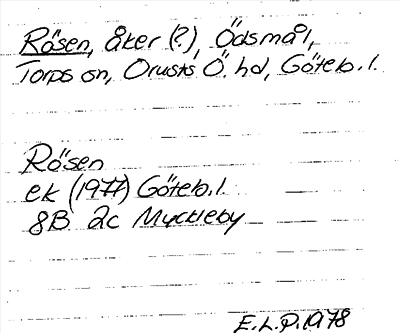 Rösen, åker (?), Ödsmål,
Torps sn, Orusts Ö. hd, Göteb. l.
Rösen
ek (1977) Göteb. l.
8B 2c Myckleby
E.L.P. 1978